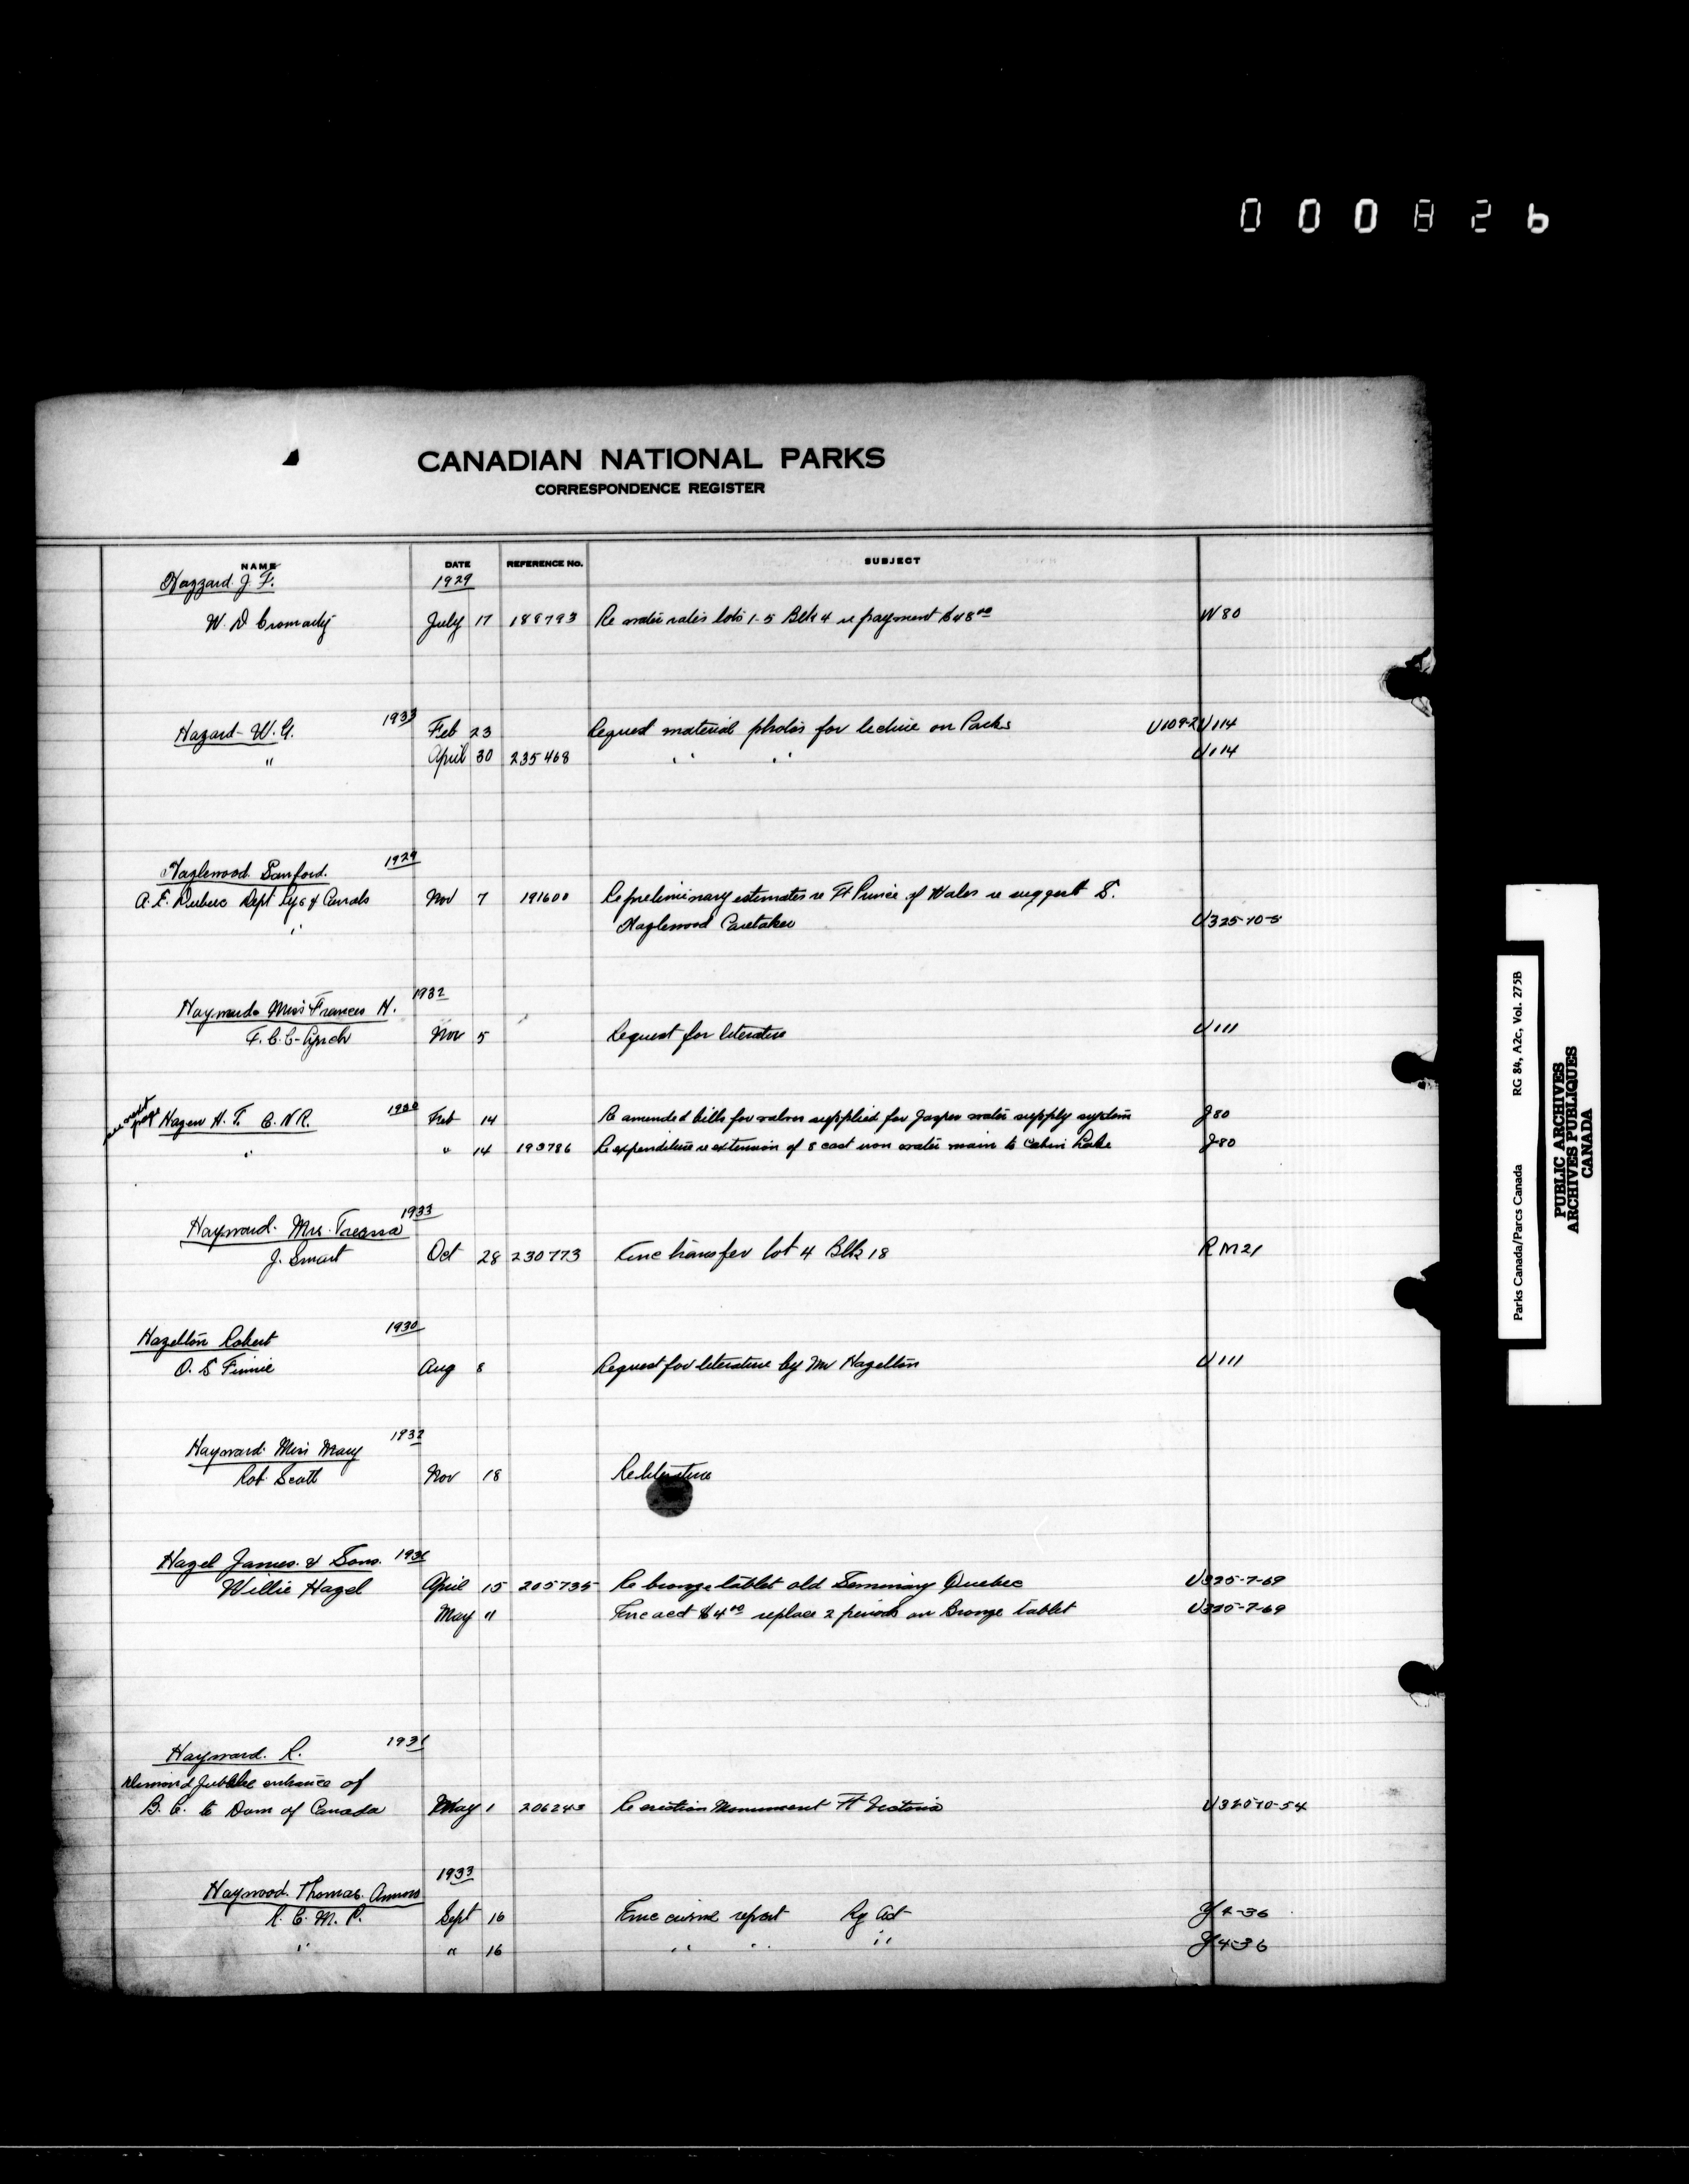 000826
CANADIAN NATIONAL PARKS
CORRESPONDENCE REGISTER
NAME DATE REFERENCE No. SUBJECT
Hazzard J. F. 1929
W. D Cromarty July 17 188793 Re water rates lots 1-5 Blk 4 re payment $48.00 W80
Hazard W. G. 1933 Feb 23 Request material photos for lecture on Parks U109-2 U114
" April 30 235468 " " U114
Hazlewood Sanford. 1929
A. E. Dubuc Dept Rys & Canals Nov 7 191600 Re preliminary estimates re Ft Prince of Wales re suggest S.
" Hazlewood Caretaker U325-10-5
Haywards Miss Frances H. 1932
F. C. C. Lynch Nov 5 Request for literature U111
see next page Hazen H. T. C.N.R. 1930 Feb 14 Re amended bills for valves supplied for Jasper water supply system J80
" " 14 193786 Re expenditure re extension of 8 cast iron water main to Cabin Lake J80
Hayward. Mrs. 1933
J. Smart Oct 28 230773 Enc transfer lot 4 Blk 18 RM21
Hazelton Robert 1930
O. S Finnie Aug 8 Request for literature by Mr Hazelton U111
Hayward Miss Mary 1932
Rob Scott Nov 18 Re literature
Hazel James & Sons. 1931
Willie Hazel April 15 205735 Re bronze tablet old Seminary Quebec U325-7-69
May " Enc acct $4.00 replace 2 periods on Bronze tablet U325-7-69
Hayward. R. 1931
Diamond Jubilee entrance of
B. C. to Dom of Canada May 1 206243 Re erection Monument Ft Victoria U325-10-54
1933
Haywood. Thomas
R. C. M. P. Sept 16 Enc crime report Ry Act J4-36
" " 16 " " " J4-36
Parks Canada/Parcs Canada RG 84, A2c, Vol. 275B
PUBLIC ARCHIVES
ARCHIVES PUBLIQUES
CANADA